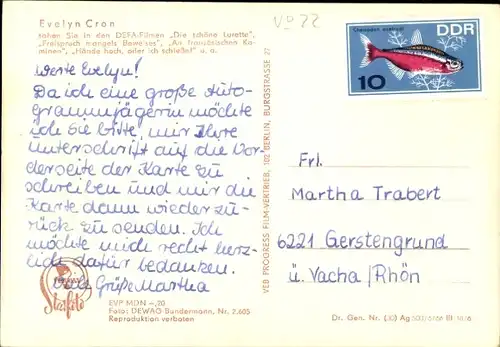 Evelyn Cron
sahen Sie in den DEFA-Filmen "Die schöne Lurette",
"Freispruch mangels Beweises", "An französischen Ka-
minen", "Hände hoch, oder ich schieße!" u. a.
VO 22
DDR
10
Werte Evelyn!
Da ich eine große Auto-
grammjägerin möchte
ich Sie bitte, mir Ihre
Unterschrift auf die Vor-
derseite der Karte zu
schreiben und mir die
Karte dann wieder zu-
rück zu senden. Ich
möchte mich recht herz-
lich dafür bedanken.
Viele Grüße Martha
Starfoto
EVP MDN -,20
Foto: DEWAG-Bundermann, Nr. 2.605
Reproduktion verboten
VEB PROGRESS FILM-VERTRIEB, 102 BERLIN, BURGSTRASSE 27
Frl.
Martha Trabert
6221 Gerstengrund
ü. Vacha/Rhön
Dr. Gen. Nr. (30) Ag 500